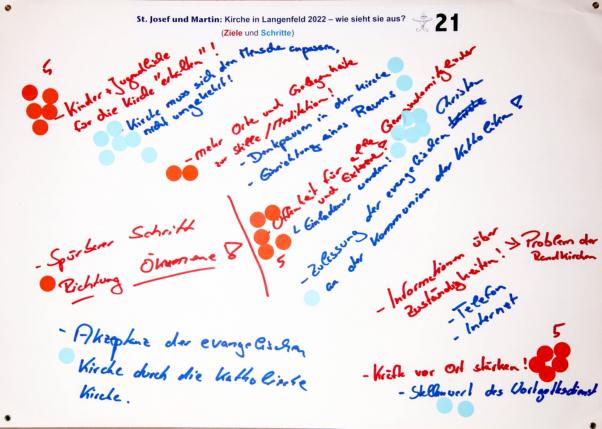 St. Josef und Martin: Kirche in Langenfeld 2022 – wie sieht sie aus?
21
(Ziele und Schritte)
5
- Kinder + Jugendliche
für die Kirche "erhalten"!
- Kirche muss sich den Menschen anpassen,
nicht umgekehrt!
- mehr Orte und Gelegenheite
zur Stille/Meditation!
- Denkpausen in der Kirche
- Einrichtung eines Raums
- Offenheit für alle Gemeindemitglieder
und Externe!
↳ Einladener werden!
5
- Zulassung der evangelischen Christen
an der Kommunion der Katholiken!
- Spürbarer Schritt
Richtung Ökumene!
- Informationen über
Zuständigkeiten!
→ Problem der
Randkirchen
- Telefon
- Internet
- Akzeptanz der evangelischen
Kirche durch die katholische
Kirche.
5
- Kräfte vor Ort stärken!
- Stellenwert des Wortgottesdienst